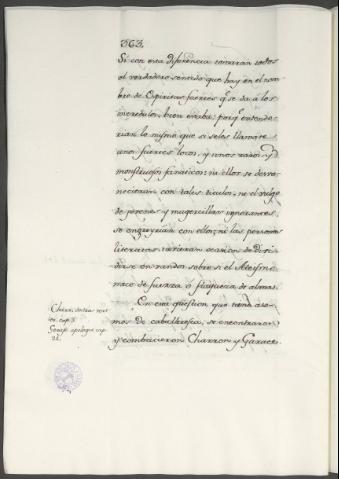 363.
Si con esta diferencia tomaran todos
el verdadero sentido que hay en el nom
bre de Espiritus fuertes qe. se da á los
incredulos, bien estaba: porqe. entende
rian lo mismo que si se les llamáre
unos fuertes locos, y unos raros, y
monstruosos fanaticos: ni ellos se desva-
necerian con tales titulos, ni el vulgo
de jovenes y mugercillas ignorantes,
se engreyrian con ellos; ni las personas
literatas tubieran ocasion de di
en vandos sobre si el Ateismo
nace de fuerza ó flaqueza de almas.
En esta question que tiene aso-
mos de caballeresca, se encontraron
y combatieron Charron y Garace.
Charr. veri
cap. 3
Garas. apolog. cap.
21.